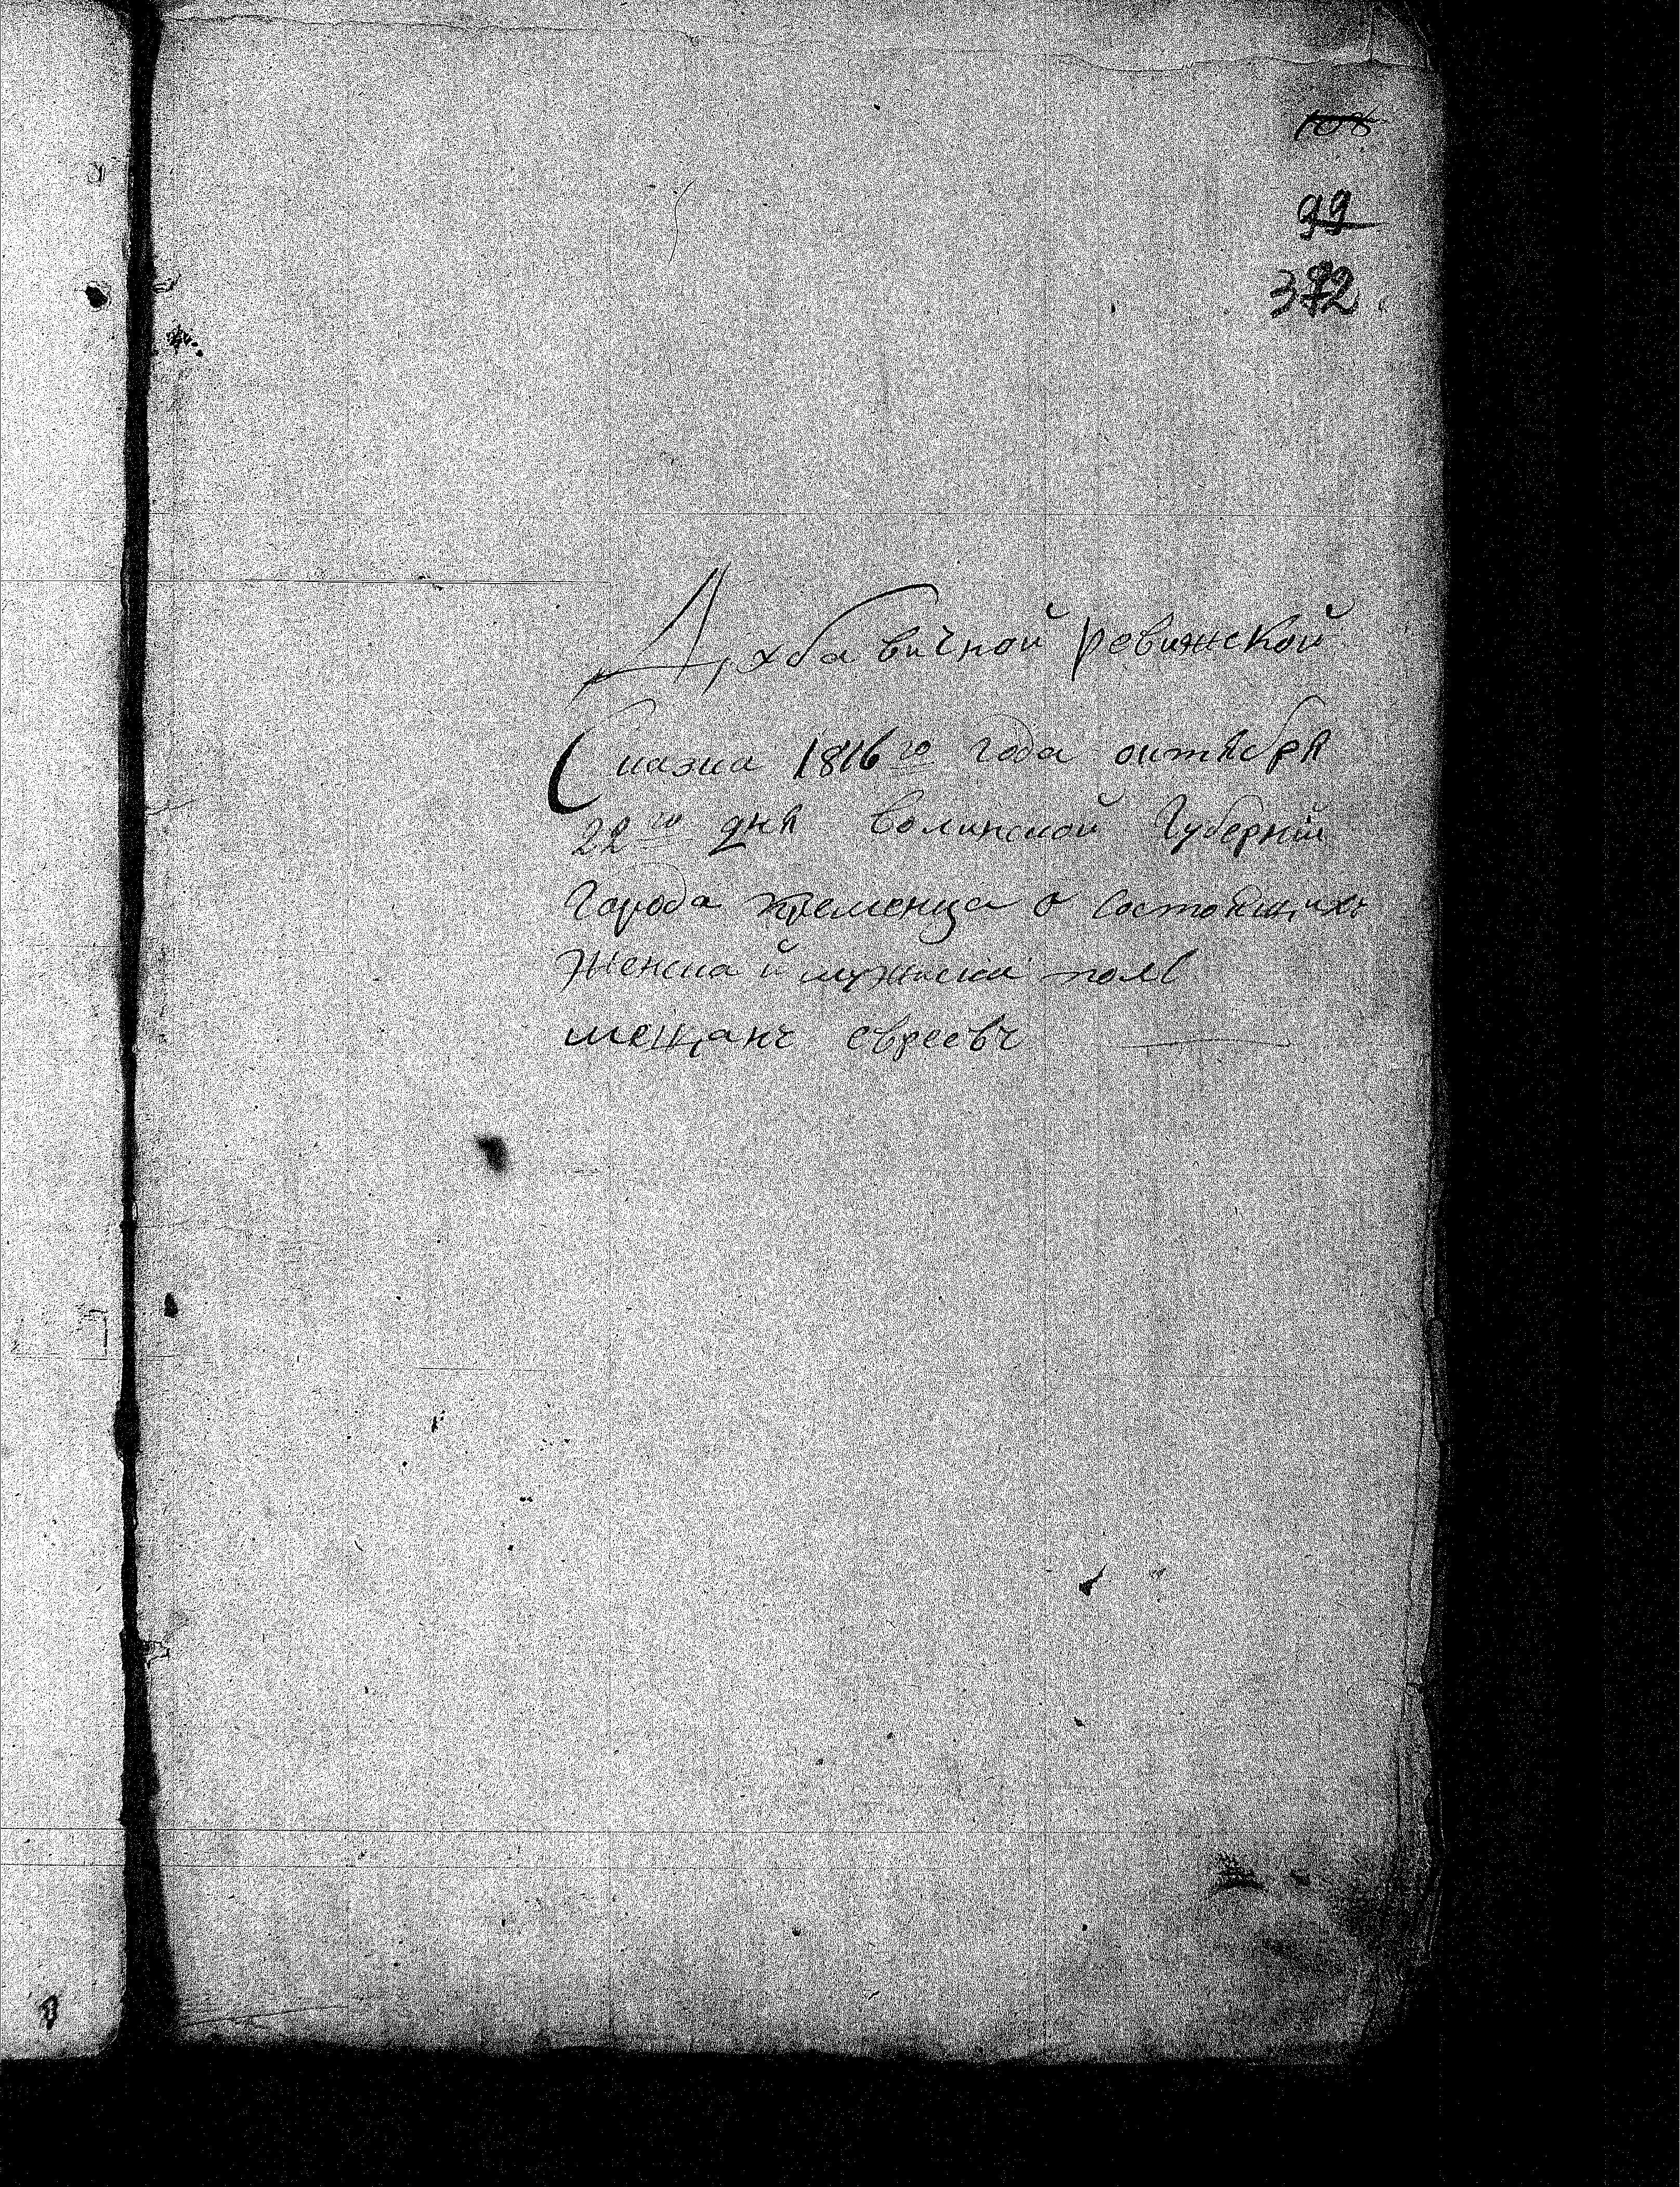 106
99
372
Дохбавичной ревижской
Сказка 1816го года октября
22го дня волинской Губерніи
Города Кременца о состоящихъ
женска й мужиски полв
мещанъ евреевъ